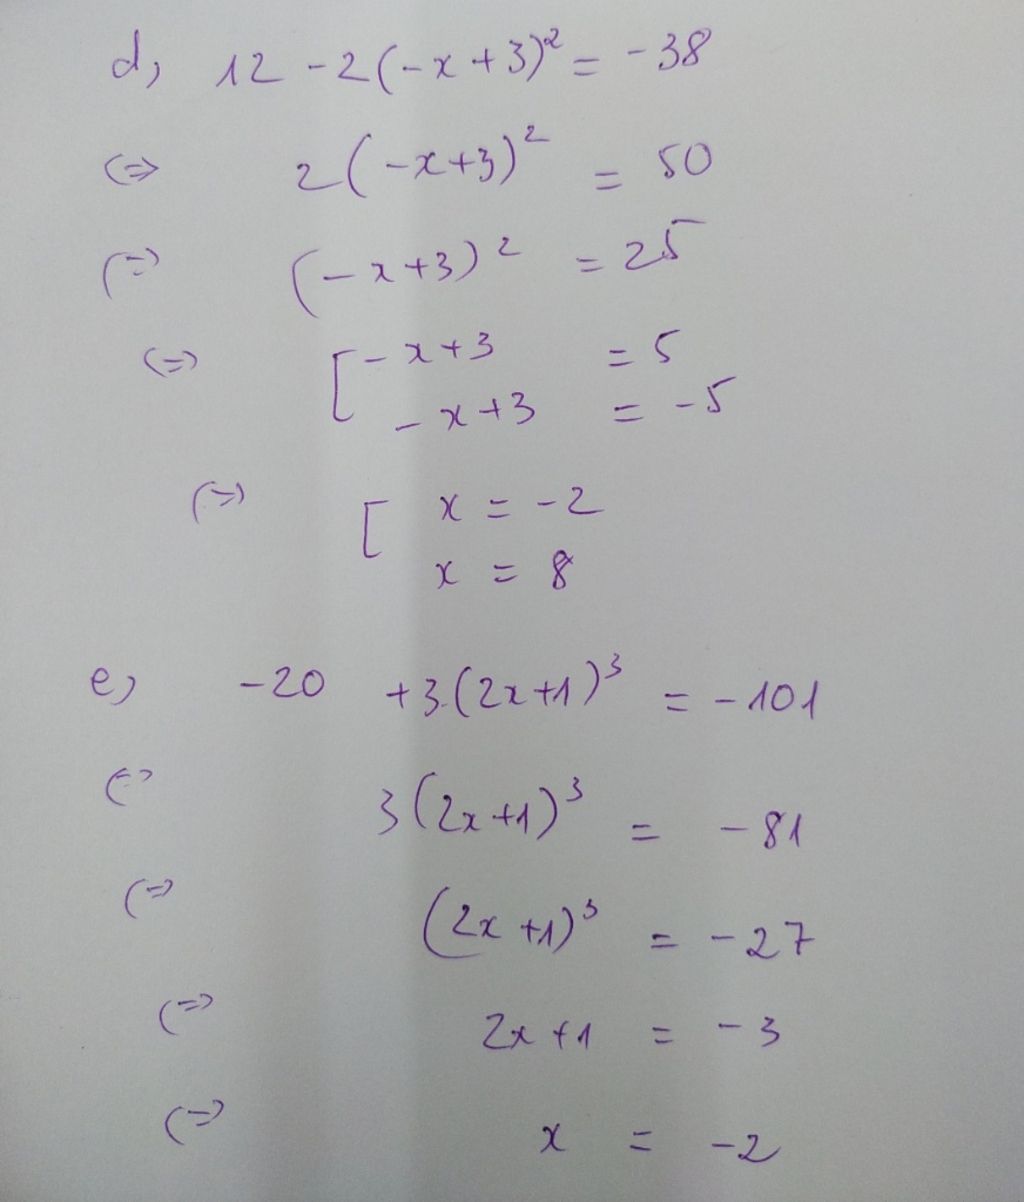 d, 12 - 2(-x+3)² = -38
(=> 2(-x+3)² = 50
(=> (-x+3)² = 25
(=> [ -x+3 = 5
-x+3 = -5
(=> [ x = -2
x = 8
e, -20 +3.(2x+1)³ = -101
(=> 3(2x+1)³ = -81
(=> (2x+1)³ = -27
(=> 2x+1 = -3
(=> x = -2